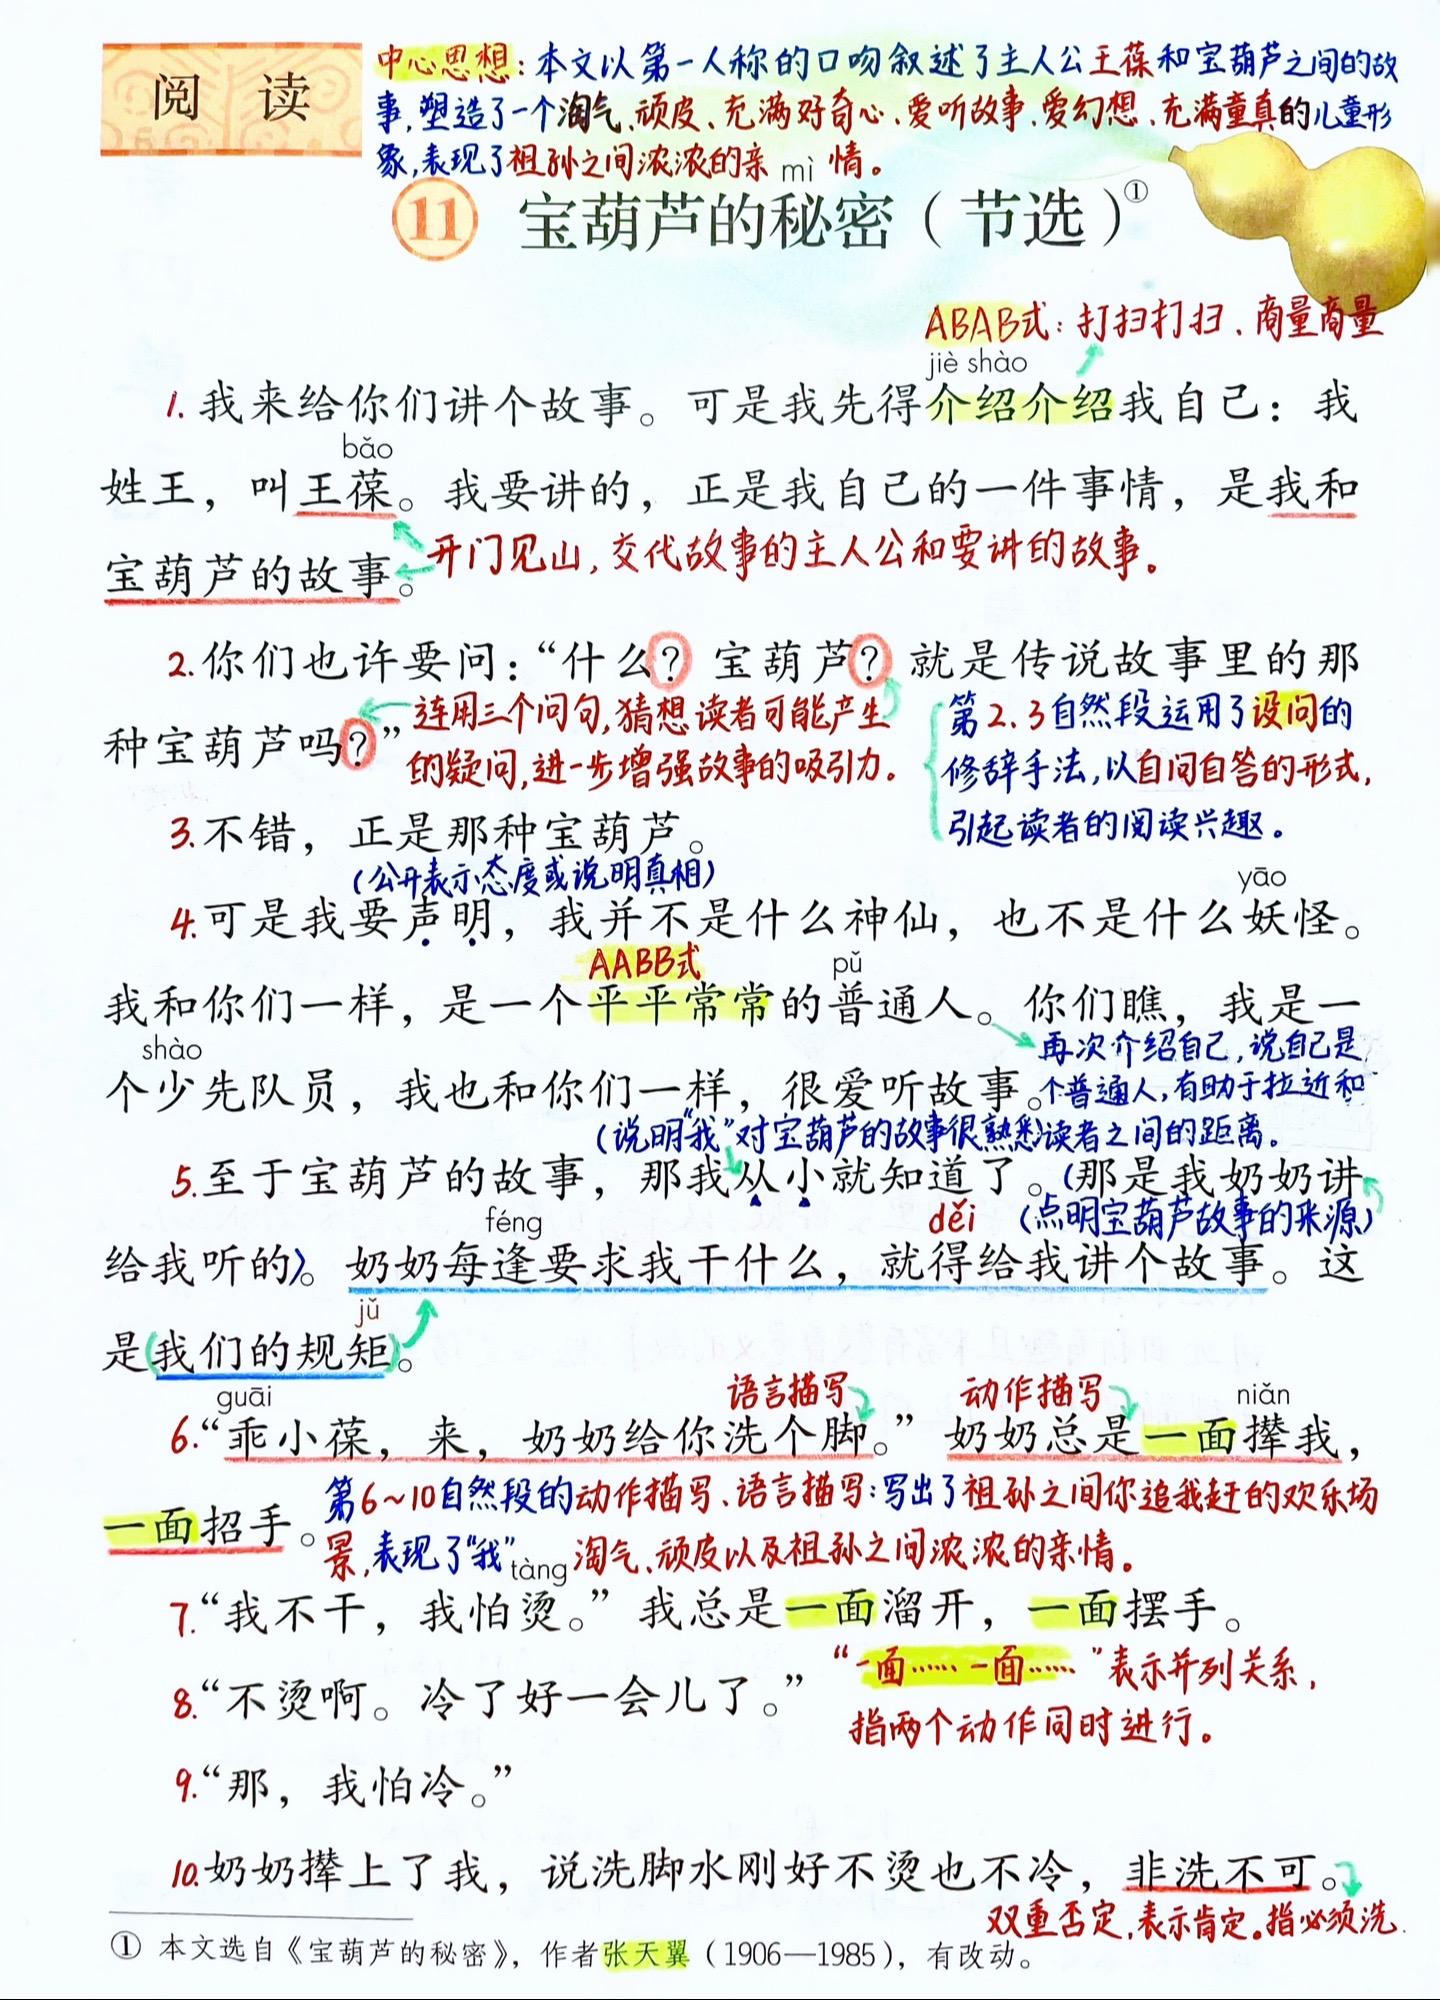 阅 读
中心思想：本文以第一人称的口吻叙述了主人公王葆和宝葫芦之间的故
事，塑造了一个淘气、顽皮、充满好奇心、爱听故事、爱幻想、充满童真的儿童形
象，表现了祖孙之间浓浓的亲情。
mì
11 宝葫芦的秘密（节选）①
ABAB式：打扫打扫、商量商量
jiè shào
1. 我来给你们讲个故事。可是我先得介绍介绍我自己：我
bǎo
姓王，叫王葆。我要讲的，正是我自己的一件事情，是我和
宝葫芦的故事。
开门见山，交代故事的主人公和要讲的故事。
2. 你们也许要问：“什么？宝葫芦？就是传说故事里的那
种宝葫芦吗？”
连用三个问句，猜想读者可能产生
的疑问，进一步增强故事的吸引力。
第2.3自然段运用了设问的
修辞手法，以自问自答的形式，
引起读者的阅读兴趣。
3. 不错，正是那种宝葫芦。
(公开表示态度或说明真相)
yāo
4. 可是我要声明，我并不是什么神仙，也不是什么妖怪。
AABB式
pǔ
我和你们一样，是一个平平常常的普通人。你们瞧，我是一
shào
个少先队员，我也和你们一样，很爱听故事。
再次介绍自己，说自己是
个普通人，有助于拉近和
读者之间的距离。
(说明“我”对宝葫芦的故事很熟悉)
5. 至于宝葫芦的故事，那我从小就知道了。(那是我奶奶讲
féng
děi
(点明宝葫芦故事的来源)
给我听的)。奶奶每逢要求我干什么，就得给我讲个故事。这
jǔ
是(我们的规矩)。
guāi
语言描写
动作描写
niǎn
6. “乖小葆，来，奶奶给你洗个脚。”奶奶总是一面撵我，
一面招手。
第6~10自然段的动作描写、语言描写：写出了祖孙之间你追我赶的欢乐场
景，表现了“我”淘气、顽皮以及祖孙之间浓浓的亲情。
tàng
7. “我不干，我怕烫。”我总是一面溜开，一面摆手。
“一面……一面……”表示并列关系，
指两个动作同时进行。
8. “不烫啊。冷了好一会儿了。”
9. “那，我怕冷。”
10. 奶奶撵上了我，说洗脚水刚好不烫也不冷，非洗不可。
双重否定，表示肯定。指必须洗.
① 本文选自《宝葫芦的秘密》，作者张天翼（1906—1985），有改动。